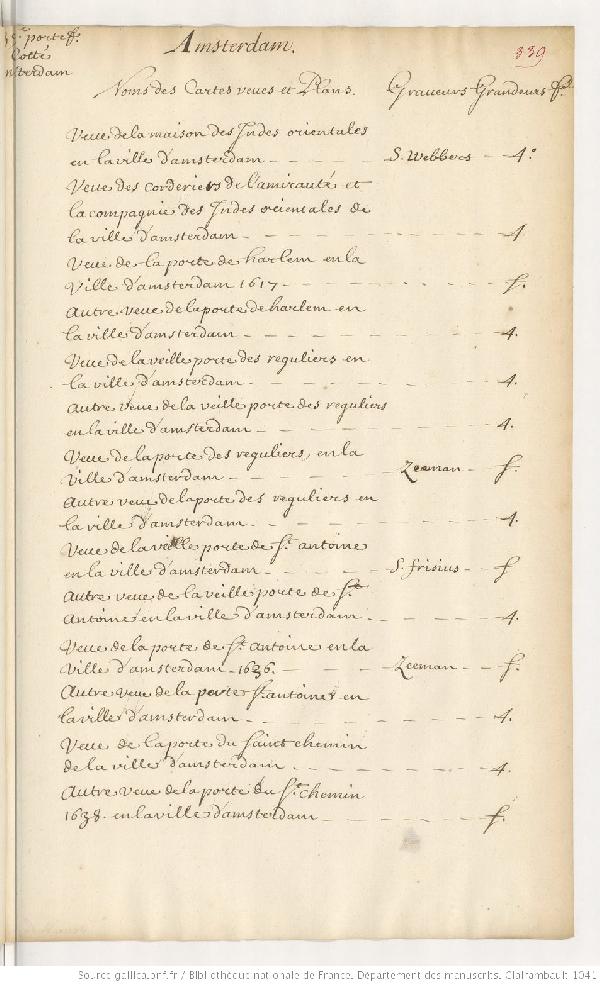 portef.
Cotté
Amsterdam.
339
Noms des Cartes veues et Plans. Graveurs Grandeurs
Veue de la maison des Indes orientales
en la ville d'amsterdam - - - - - S. Webbers - 4.°
Veue des corderiers de l'amirauté et
la compagnie des Indes orientales de
la ville d'amsterdam - - - - - - 4
Veue de la porte de harlem en la
Ville d'amsterdam 1617 - - - - - - f.
Autre veue de la porte de harlem en
la ville d'amsterdam - - - - - - 4.
Veue de la veille porte des reguliers en
la ville d'amsterdam - - - - - - 4.
Autre veue de la veille porte des reguliers
en la ville d'amsterdam - - - - - - 4.
Veue de la porte des reguliers, en la
Ville d'amsterdam - - - - - Zeeman - f.
Autre veue de la porte des reguliers en
la ville d'amsterdam - - - - - - 4.
Veue de la veille porte de St. antoine
en la ville d'amsterdam - - - - - S. frisius - f
Autre veue de la veille porte de St.
Antoine en la ville d'amsterdam - - - - 4.
Veue de la porte de St. antoine en la
Ville d'amsterdam - 1636. - - - - Zeeman - - f.
Autre veue de la porte St. antoine en
la ville d'amsterdam - - - - - - 4.
Veue de la porte du Sainct chemin
de la ville d'amsterdam - - - - - - 4.
Autre Veue de la porte du St. chemin
1638. en la ville d'amsterdam - - - - - f.
Source gallica.bnf.fr / Bibliothèque nationale de France. Département des manuscrits. Clairambault 1041